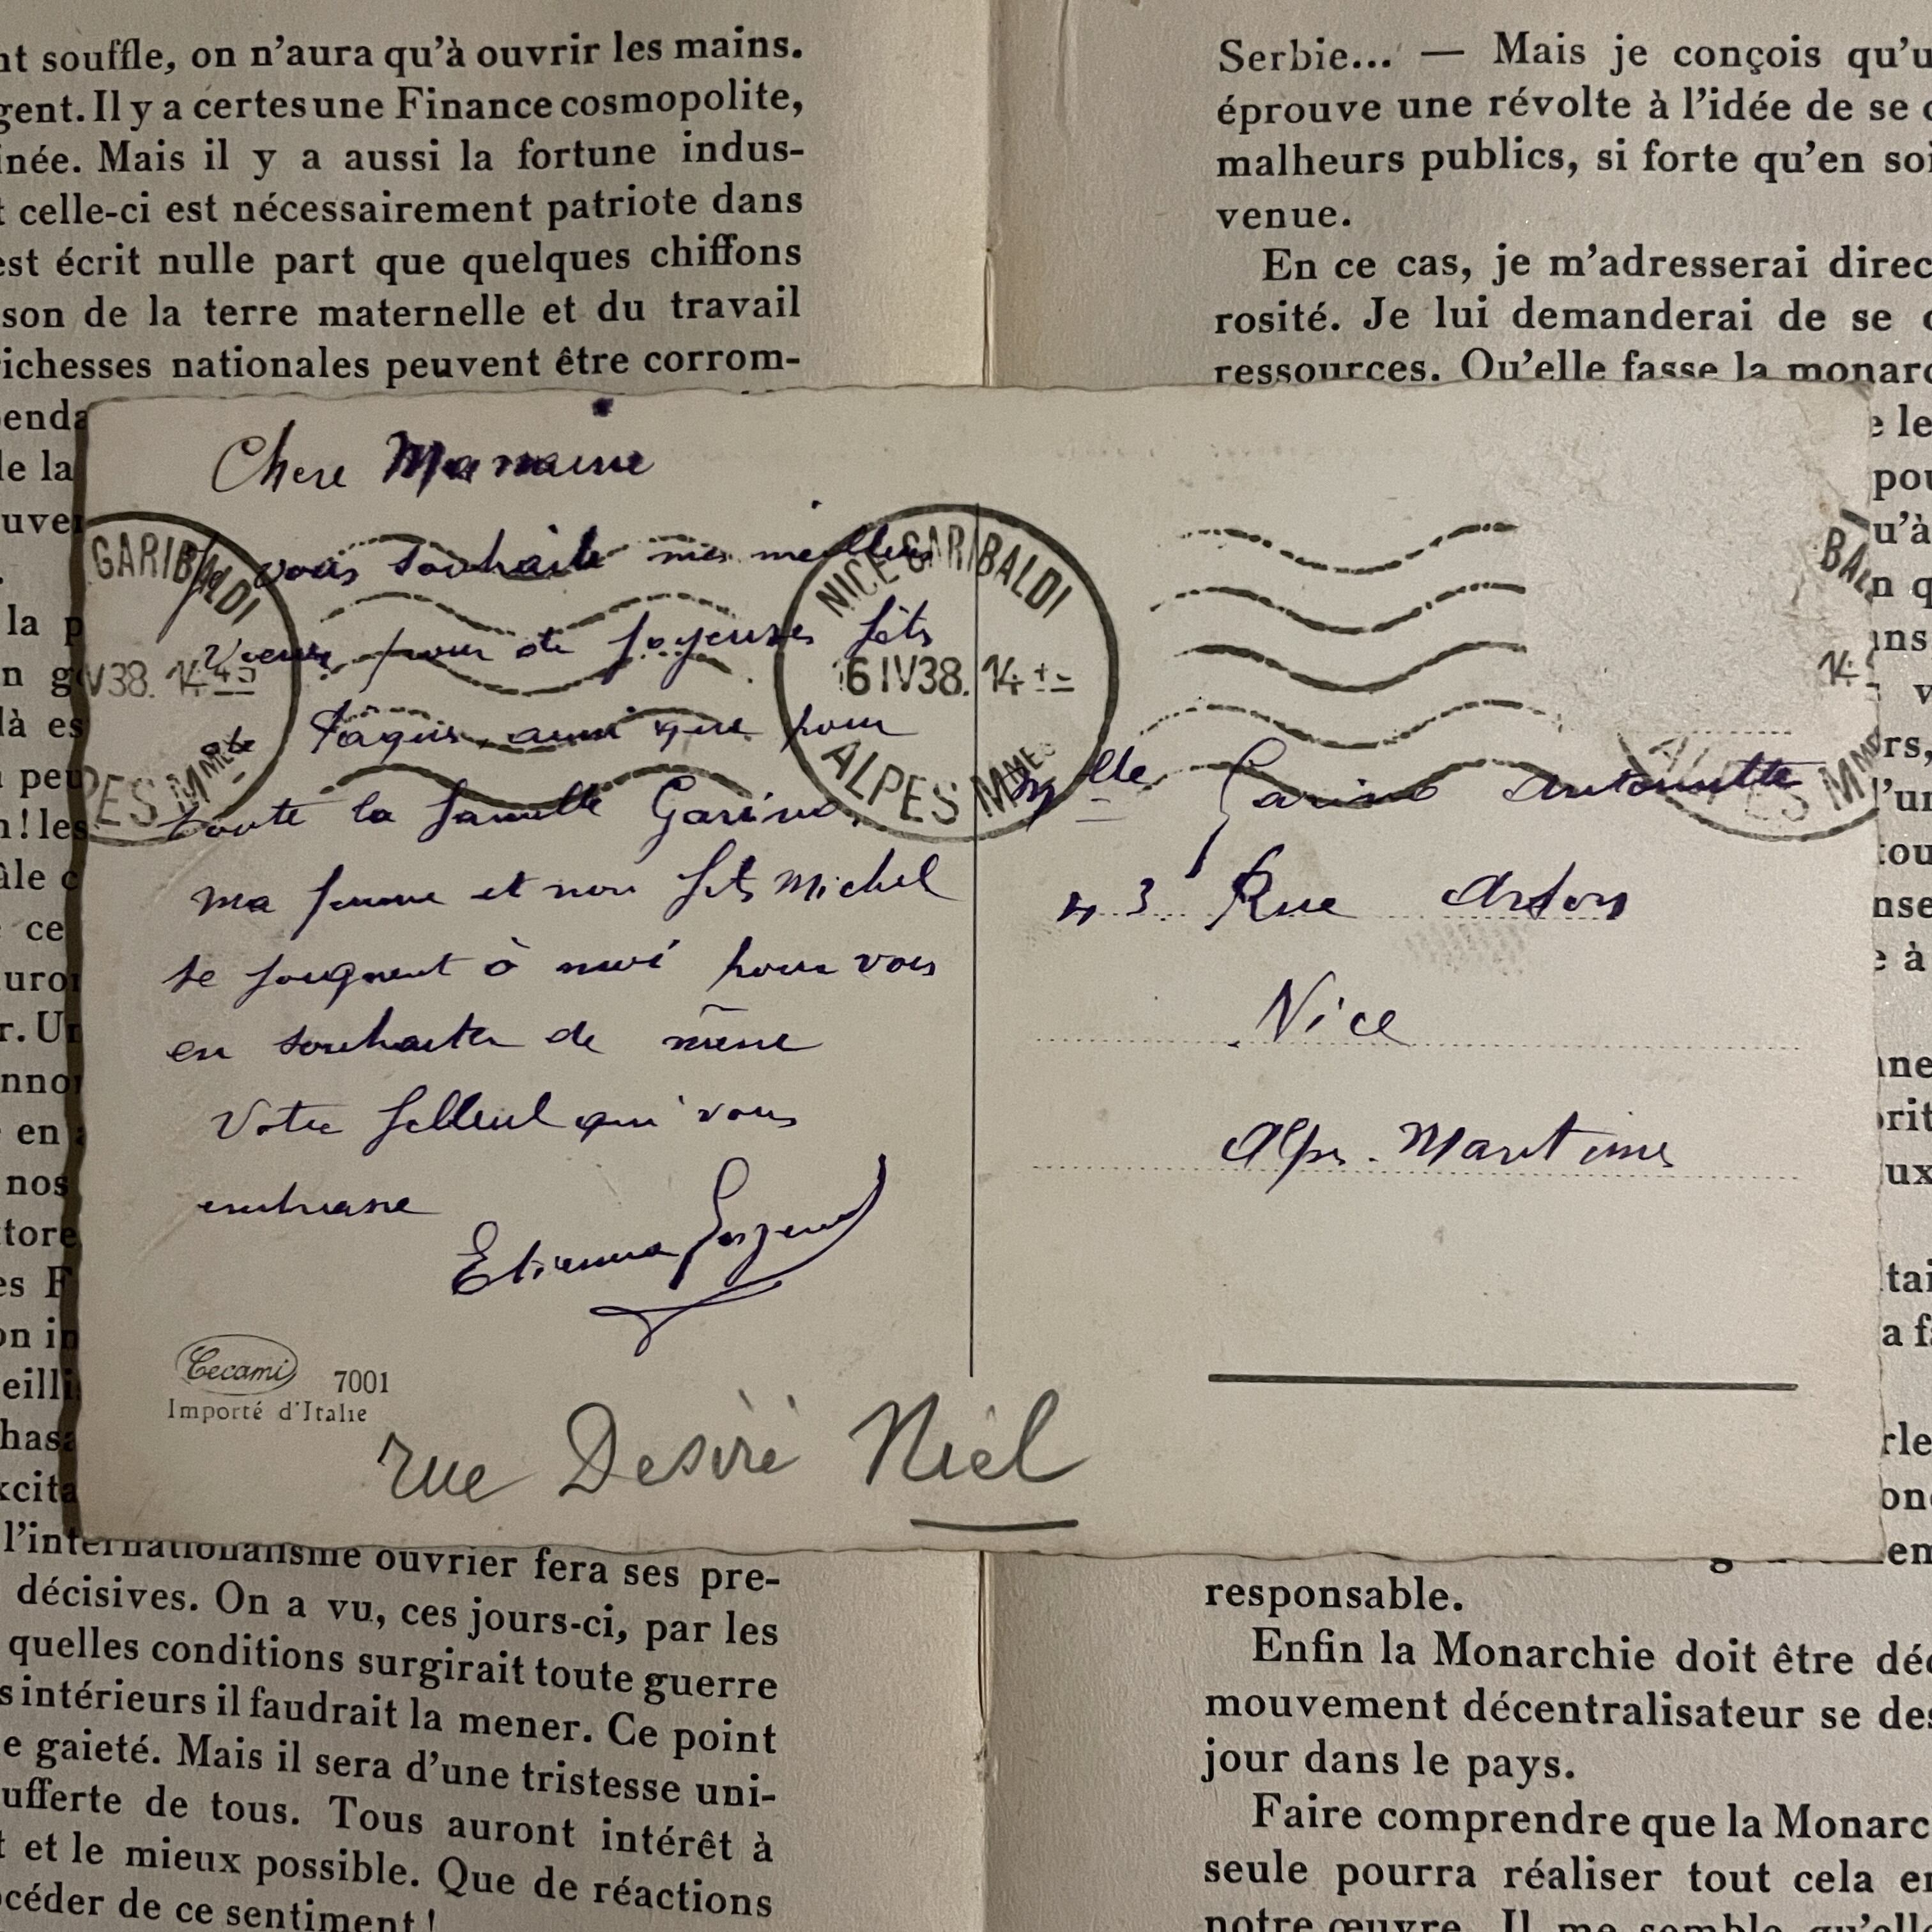 nt souffle, on n'aura qu'à ouvrir les mains.
gent. Il y a certes une Finance cosmopolite,
inée. Mais il y a aussi la fortune indus-
t celle-ci est nécessairement patriote dans
est écrit nulle part que quelques chiffons
son de la terre maternelle et du travail
richesses nationales peuvent être corrom-
penda
le la
ouver
la p
n g
là es
peu
n ! les
âle c
ce
uron
r. Un
nnor
en
nos
tore
es F
on in
eilli
hasa
xcita
l'internationalisme ouvrier fera ses pre-
décisives. On a vu, ces jours-ci, par les
quelles conditions surgirait toute guerre
s intérieurs il faudrait la mener. Ce point
e gaieté. Mais il sera d'une tristesse uni-
ufferte de tous. Tous auront intérêt à
t et le mieux possible. Que de réactions
océder de ce sentiment !
Serbie... — Mais je conçois qu'u
éprouve une révolte à l'idée de se
malheurs publics, si forte qu'en soi
venue.
En ce cas, je m'adresserai direc
rosité. Je lui demanderai de se
ressources. Qu'elle fasse la monarc
e le
pou
u'à
n q
ns
v
rs,
l'un
tou
nse
e à
ne
rit
ux
tai
a fa
rle
on
em
responsable.
Enfin la Monarchie doit être déc
mouvement décentralisateur se des
jour dans le pays.
Faire comprendre que la Monarc
seule pourra réaliser tout cela en
notre œuvre. Il me semble qu'elle
Chere Marraine
Je vous souhaite mes meilleurs
Vœux pour de joyeuses fêts
Pâques, ainsi que pour
toute la famille Garino.
ma femme et mon fils Michel
se joignent à moi pour vous
en souhaiter de même
Votre filleul qui vous
embrasse
Etienne
Cecami 7001
Importé d'Italie
rue Desiré Niel
GARIBALDI
V38. 14 45
PES MMES
NICE GARIBALDI
16 IV 38. 14
ALPES MMES
BAL
14
ALPES MMES
Mlle Garino Antoinette
43 Rue Arson
Nice
Alpes-Maritimes